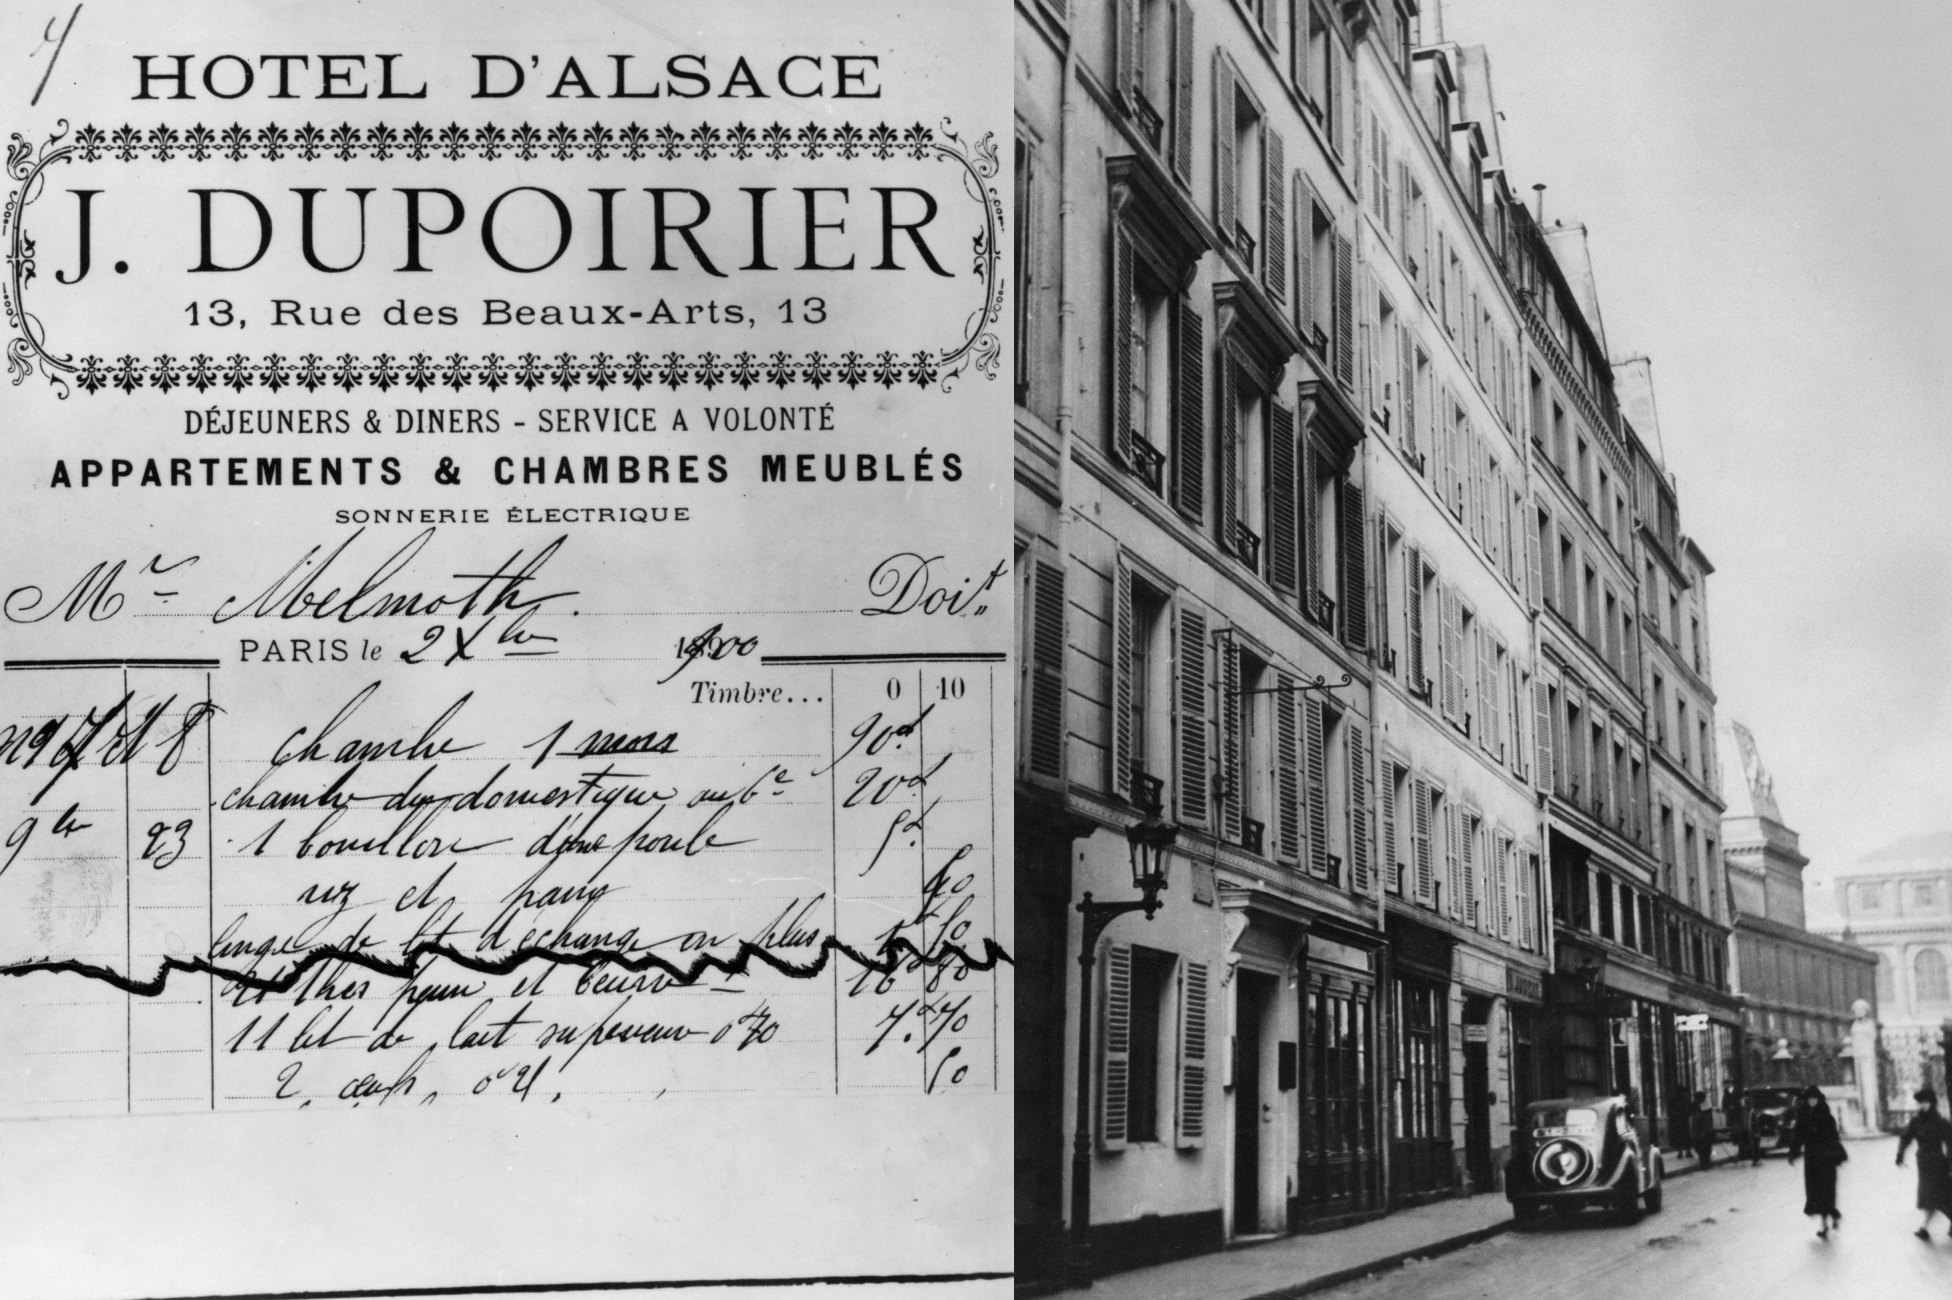 HOTEL D'ALSACE
J. DUPOIRIER
13, Rue des Beaux-Arts, 13
DÉJEUNERS & DINERS - SERVICE A VOLONTÉ
APPARTEMENTS & CHAMBRES MEUBLÉS
SONNERIE ÉLECTRIQUE
Mr Melmoth. Doit
PARIS le 2 Xbre 1900
Timbre... 0 10
8 chambre 1 mois 90f
chambre du domestique au 6e 20f
9bre 23 1 bouillon d'une poule 5f
riz et pain
linge de lit d'échange en plus 50
thés pain et beurre 16 80
11 lit de lait supérieur 0f70 7f70
2 œufs